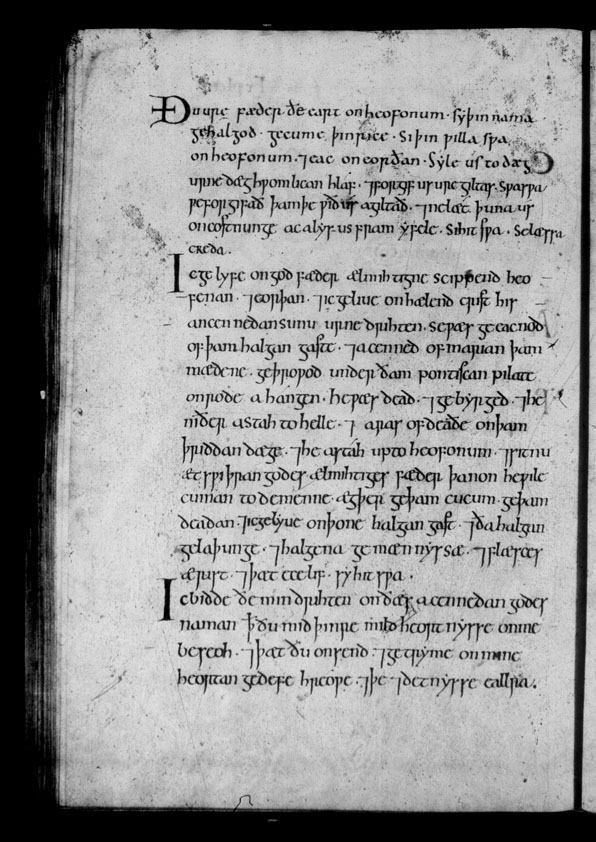 Ðu ure fæder ðe eart on heofonum · sy þin nama
gehalgod · gecume þin rice · Si þin ƿilla sƿa
on heofonum · ⁊ eac on eorðan · Syle us to dæg
urne dæghƿomlican hlaf · ⁊ forgif us ure giltas · sƿa sƿa
ƿe forgifað þam þe ƿið us agiltað · ⁊ ne læt þu na us
on costnunge ac alys us fram yfele · Si hit sƿa · Se læssa
creda ·
Ic gelyfe on god fæder ælmihtigne scippend heo
fenan · ⁊ eorþan · ⁊ ic gelive on hælend crist his
ancennedan sunu urne drihten · se ƿæs geeacnod
of þam halgan gaste · ⁊ acenned of marian þam
mædene · geþroƿod under ðam pontiscan pilate
on rode ahangen · he ƿæs dead · ⁊ gebyrged · ⁊ he
niðer astah to helle · ⁊ aras of deaðe on þam
þriddan dæge · ⁊ he astah up to heofonum · ⁊ sit nu
æt sƿiþran godes ælmihtiges fæder þanon he ƿile
cuman to demenne · ægþer ge þam cucum · ge þam
deadan · ⁊ ic gelyve on þone halgan gast · ⁊ ða halgan
gelaþunge · ⁊ halgena gemænnysse · ⁊ flæsces
ærist · ⁊ þæt ece lif · sy hit sƿa ·
Ic bidde ðe min drihten on ðæs acennedan godes
naman ꝥ ðu mid þinre mildheortnysse on me
beseoh · ⁊ þæt ðu onsend · ⁊ getryme on mine
heortan gedefe hreoƿe ·